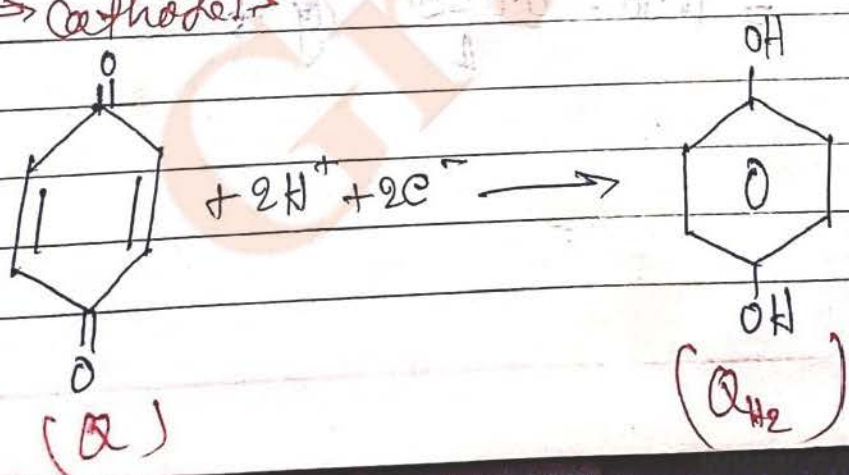 ⇒ Cathode :-
O
OH
+ 2H⁺ + 2e⁻ ⟶
O
OH
(Q)
(QH₂)